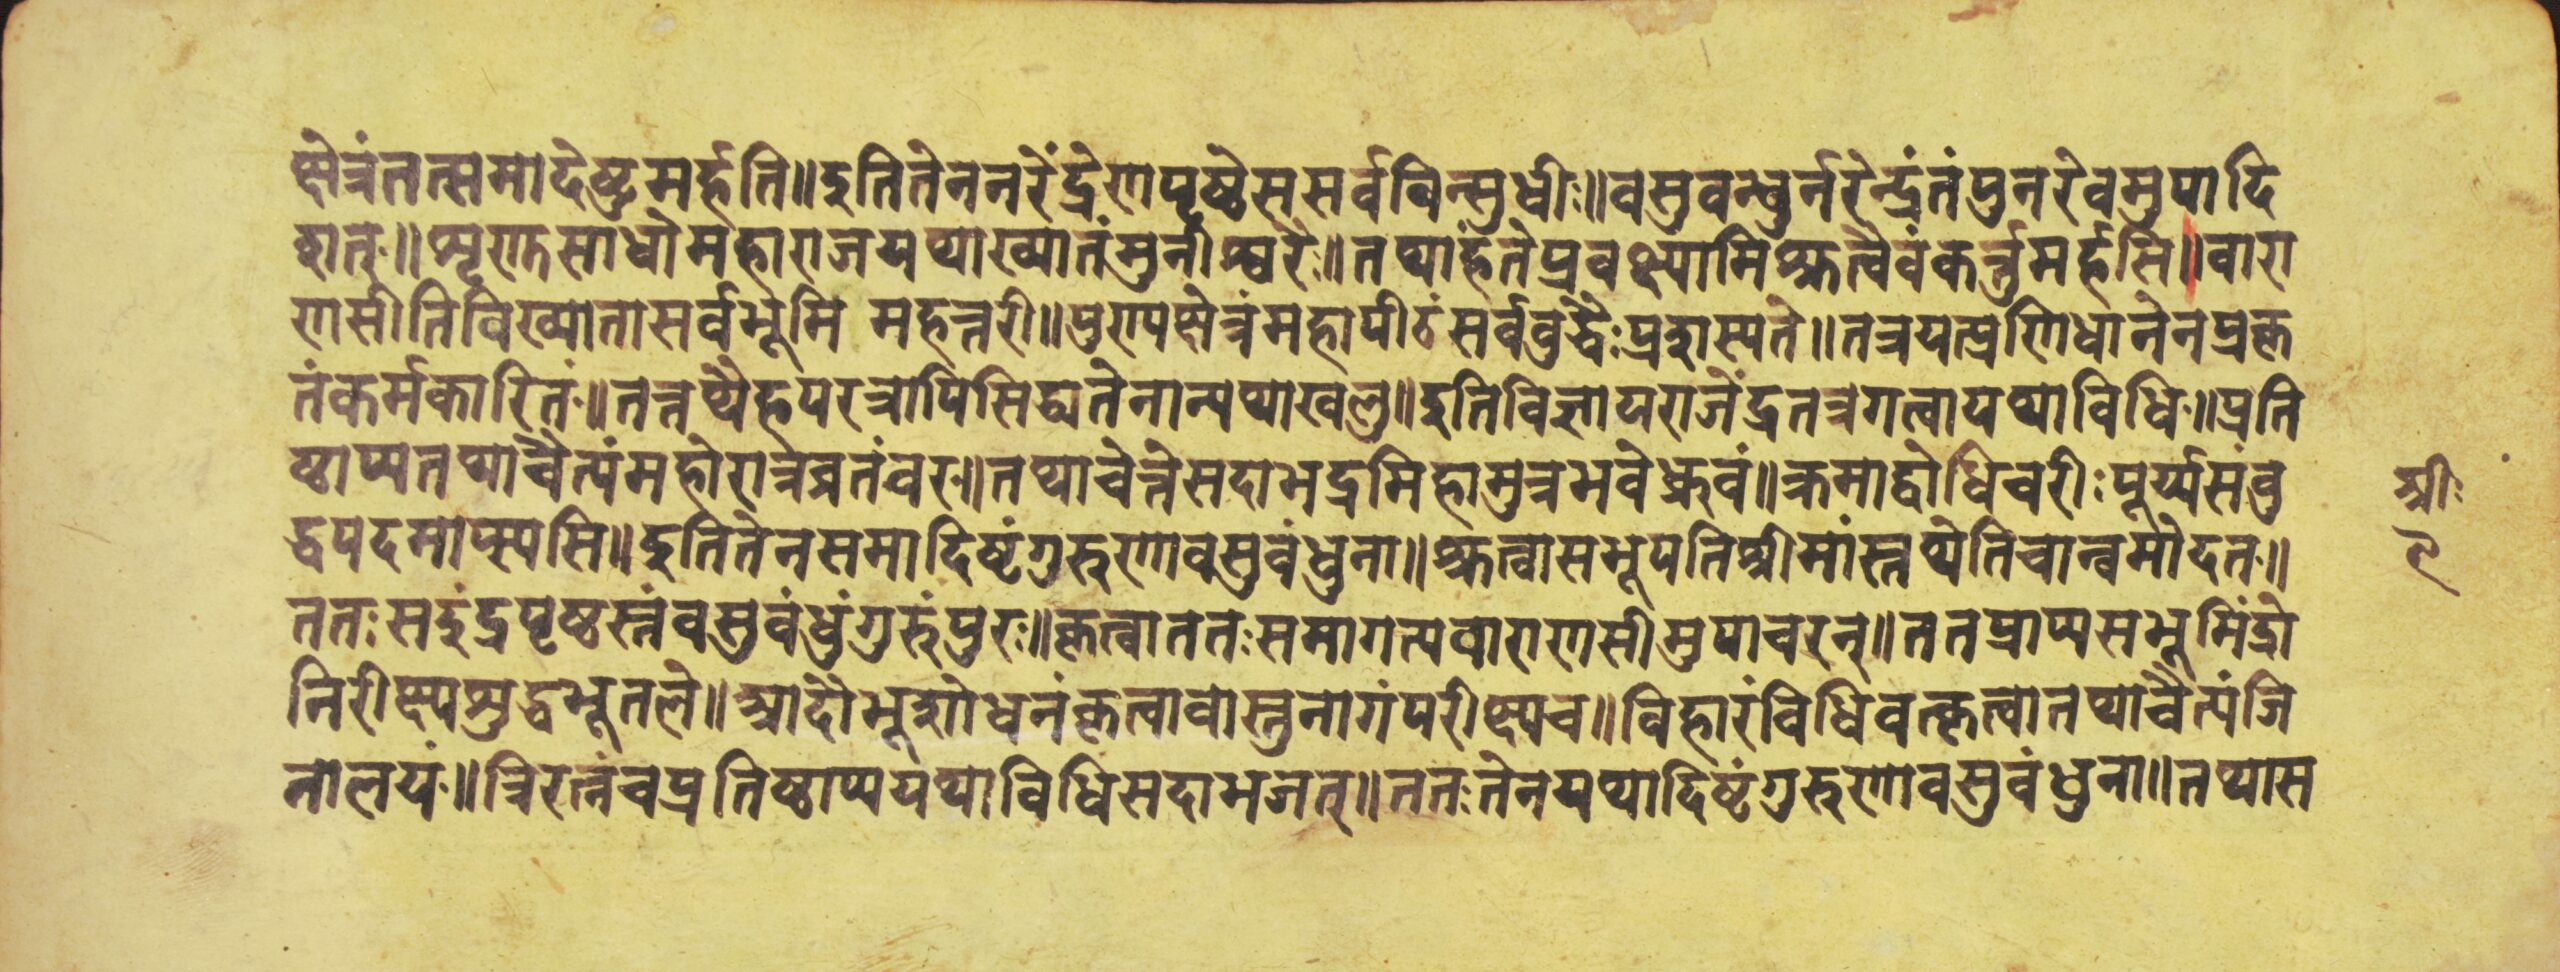 क्षेत्रंतत्समादेष्टुमर्हति॥इतितेननरेंद्रेणपृष्ठेससर्वविन्सुधीः॥वसुवन्धुर्नरेन्द्रंतंपुनरेवमुपादि
शत्॥शृणुसाधोमहाराजयथाख्यातंमुनीश्वरैः॥तथाहंतेप्रवक्ष्यामिश्रुत्वैवंकर्त्तुमर्हसि॥वारा
णसीतिविख्यातासर्वभूमि महत्तरी॥पुण्यक्षेत्रंमहापीठंसर्वबुद्धैःप्रशस्यते॥तत्रयत्प्रणिधानेनप्रकृ
तंकर्मकारितं॥तत्तथैहपरत्रापिसिद्ध्यतेनान्यथाखलु॥इतिविज्ञायराजेंद्रतत्रगत्वायथाविधिः॥प्रति
ष्ठाप्यतथाचैत्यंमहोरात्रव्रतंचर॥तथाचेत्तेसदाभद्रमिहामुत्रभवेध्रुवं॥क्रमाद्वोधिचरीःपूर्य्यसंवु
द्धपदमाप्स्यसि॥इतितेनसमादिष्टंगुरुणावसुवंधुना॥श्रुत्वासभूपतिश्रीमांस्तथेतिचान्वमोदत॥
ततःसइंद्रपृष्ठस्तंवसुवंधुंगुरुंपुरः॥कृत्वाततःसमागत्यवाराणसीमुपाचरन्॥ततप्राप्यसभूमिंद्रो
निरीक्ष्यशुद्धभूतले॥आदौभूशोधनंकृत्वावास्तुनागंपरीक्ष्यच॥विहारंविधिवत्कृत्वातथाचैत्यंजि
नालयं॥त्रिरत्नंचप्रतिष्ठाप्ययथाविधिसदाभजत्॥ततःतेनयथादिष्टंगुरुणावसुवंधुना॥तथास
श्रीः
९